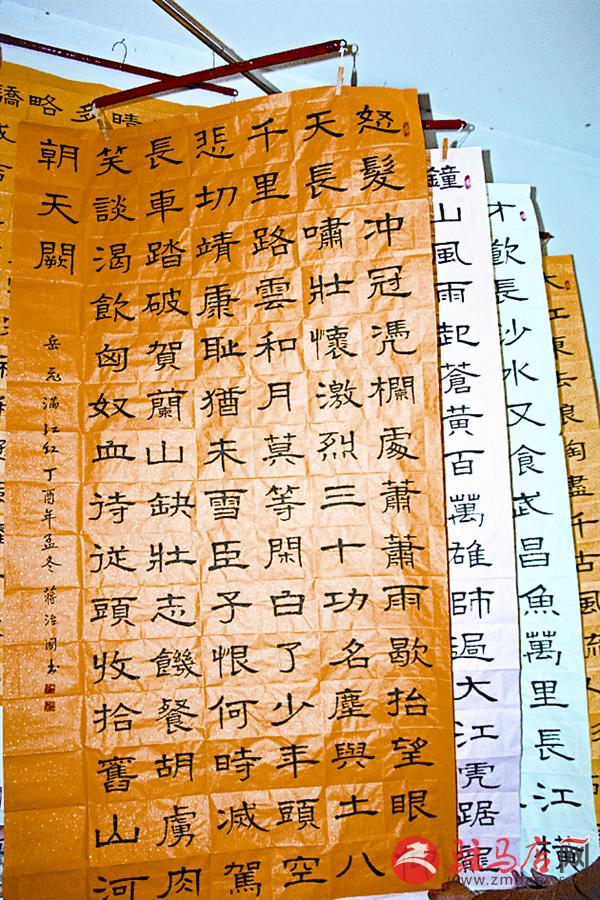 大江東去浪淘盡千古風流人
才飲長沙水又食武昌魚萬里長江橫
鐘山風雨起蒼黃百萬雄師過大江虎踞
怒髮冲冠憑欄處蕭蕭雨歇抬望眼
天長嘯壯懷激烈三十功名塵與土八
千里路雲和月莫等閑白了少年頭空
悲切靖康耻猶未雪臣子恨何時滅駕
長車踏破賀蘭山缺壯志饑餐胡虜肉
笑談渴飲匈奴血待従頭收拾舊山河
朝天闕
岳飛滿江红丁酉年孟冬蒋治國书
晴
多
略
驕
驻马店网